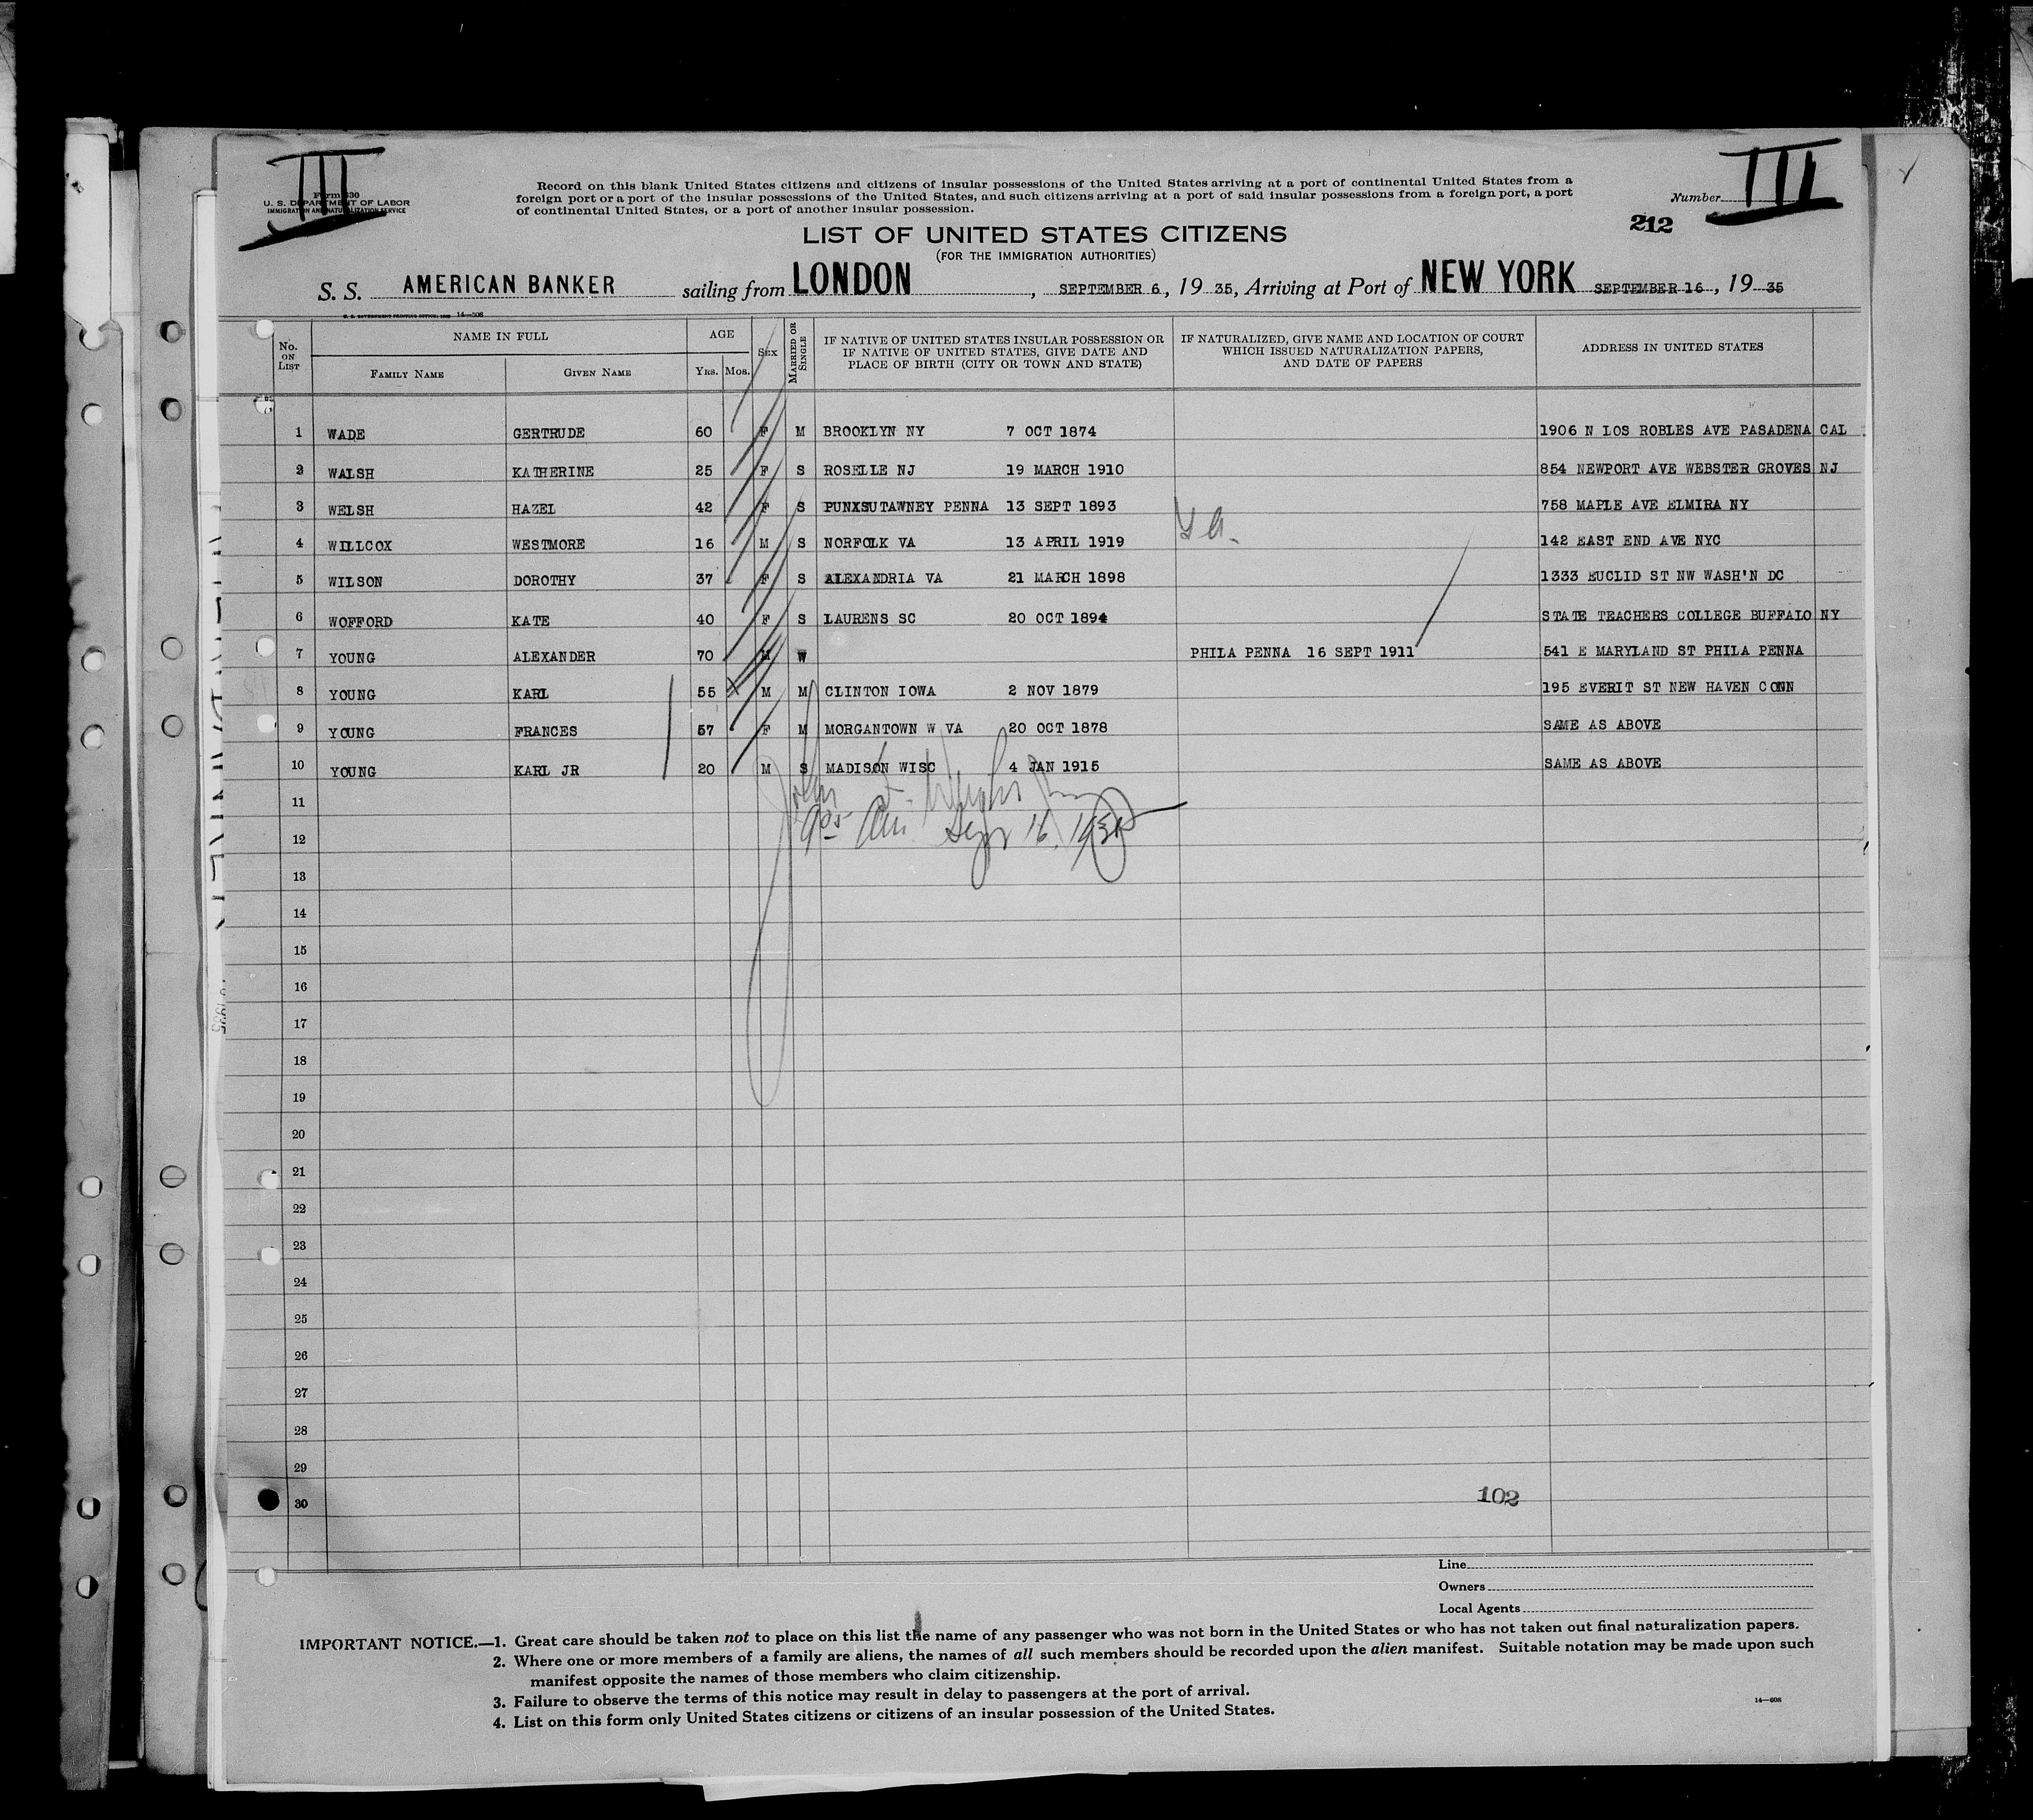 III
III
Form 630
U. S. DEPARTMENT OF LABOR
IMMIGRATION AND NATURALIZATION SERVICE
Record on this blank United States citizens and citizens of insular possessions of the United States arriving at a port of continental United States from a
foreign port or a port of the insular possessions of the United States, and such citizens arriving at a port of said insular possessions from a foreign port, a port
of continental United States, or a port of another insular possession.
Number
212
LIST OF UNITED STATES CITIZENS
(FOR THE IMMIGRATION AUTHORITIES)
S. S. AMERICAN BANKER sailing from LONDON, SEPTEMBER 6, 19 35, Arriving at Port of NEW YORK SEPTEMBER 16, 19 35
14—608
No. ON LIST
NAME IN FULL
FAMILY NAME
GIVEN NAME
AGE
YRS. MOS.
SEX
MARRIED OR SINGLE
IF NATIVE OF UNITED STATES INSULAR POSSESSION OR
IF NATIVE OF UNITED STATES, GIVE DATE AND
PLACE OF BIRTH (CITY OR TOWN AND STATE)
IF NATURALIZED, GIVE NAME AND LOCATION OF COURT
WHICH ISSUED NATURALIZATION PAPERS,
AND DATE OF PAPERS
ADDRESS IN UNITED STATES
1 WADE GERTRUDE 60 F M BROOKLYN NY 7 OCT 1874 1906 N LOS ROBLES AVE PASADENA CAL
2 WALSH KATHERINE 25 F S ROSELLE NJ 19 MARCH 1910 854 NEWPORT AVE WEBSTER GROVES NJ
3 WELSH HAZEL 42 F S PUNXSUTAWNEY PENNA 13 SEPT 1893 758 MAPLE AVE ELMIRA NY
4 WILLCOX WESTMORE 16 M S NORFOLK VA 13 APRIL 1919 142 EAST END AVE NYC
5 WILSON DOROTHY 37 F S ALEXANDRIA VA 21 MARCH 1898 1333 EUCLID ST NW WASH'N DC
6 WOFFORD KATE 40 F S LAURENS SC 20 OCT 1894 STATE TEACHERS COLLEGE BUFFALO NY
7 YOUNG ALEXANDER 70 M W PHILA PENNA 16 SEPT 1911 541 E MARYLAND ST PHILA PENNA
8 YOUNG KARL 55 M M CLINTON IOWA 2 NOV 1879 195 EVERIT ST NEW HAVEN CONN
9 YOUNG FRANCES 57 F M MORGANTOWN W VA 20 OCT 1878 SAME AS ABOVE
10 YOUNG KARL JR 20 M S MADISON WISC 4 JAN 1915 SAME AS ABOVE
11
12
13
14
15
16
17
18
19
20
21
22
23
24
25
26
27
28
29
30
102
Line
Owners
Local Agents
IMPORTANT NOTICE.—1. Great care should be taken not to place on this list the name of any passenger who was not born in the United States or who has not taken out final naturalization papers.
2. Where one or more members of a family are aliens, the names of all such members should be recorded upon the alien manifest. Suitable notation may be made upon such
manifest opposite the names of those members who claim citizenship.
3. Failure to observe the terms of this notice may result in delay to passengers at the port of arrival.
4. List on this form only United States citizens or citizens of an insular possession of the United States.
14—608